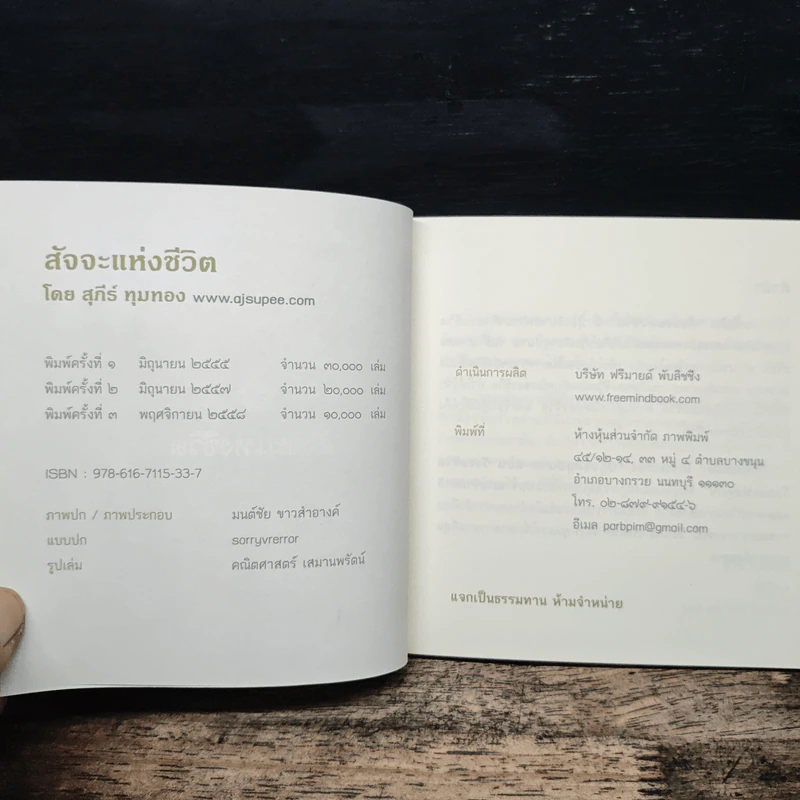 สัจจะแห่งชีวิต
โดย สุภีร์ ทุมทอง www.ajsupee.com
พิมพ์ครั้งที่ ๑ มิถุนายน ๒๕๕๕ จำนวน ๓๐,๐๐๐ เล่ม
พิมพ์ครั้งที่ ๒ มิถุนายน ๒๕๕๗ จำนวน ๒๐,๐๐๐ เล่ม
พิมพ์ครั้งที่ ๓ พฤศจิกายน ๒๕๕๘ จำนวน ๑๐,๐๐๐ เล่ม
ISBN : 978-616-7115-33-7
ภาพปก / ภาพประกอบ มนต์ชัย ขาวสำอางค์
แบบปก sorryvrerror
รูปเล่ม คณิตศาสตร์ เสมานพรัตน์
ดำเนินการผลิต บริษัท ฟรีมายด์ พับลิชชิ่ง
www.freemindbook.com
พิมพ์ที่ ห้างหุ้นส่วนจำกัด ภาพพิมพ์
๔๕/๑๒-๑๔, ๓๓ หมู่ ๔ ตำบลบางขนุน
อำเภอบางกรวย นนทบุรี ๑๑๑๓๐
โทร. ๐๒-๘๗๙-๙๑๕๔-๖
อีเมล parbpim@gmail.com
แจกเป็นธรรมทาน ห้ามจำหน่าย